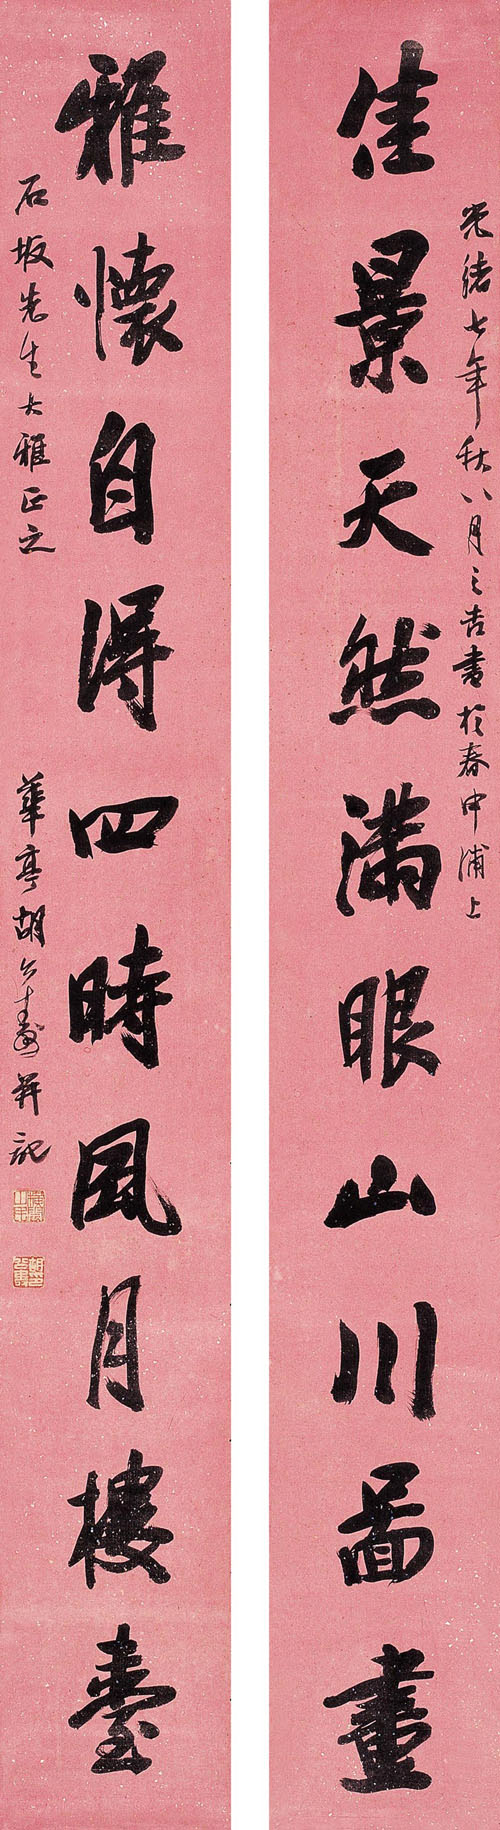 光緒七年秋八月之吉書於春申浦上
佳景天然滿眼山川圖畫
雅懷自得四時風月樓臺
石坂先生大雅正之
華亭胡公壽并記